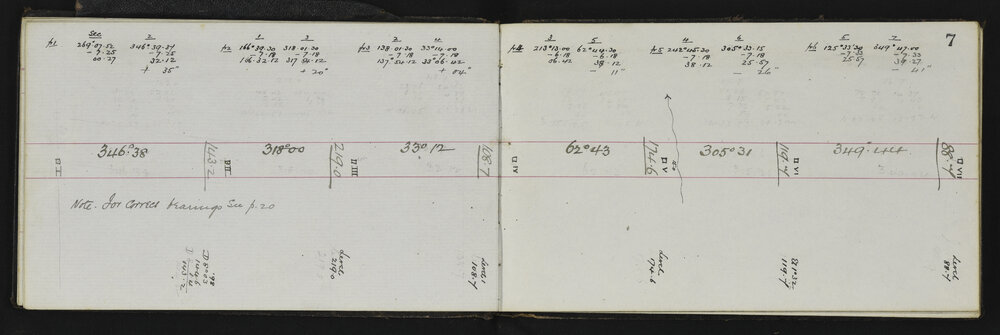 7
Sec 2 1 3 2 4
pt 1 269.07.52 346°.39.37 pt 2 166°.39.30 318.01.30 pt 3 138.01.30 33°14.00
- 7.25 - 7.25 - 7.18 - 7.18 - 7.18 - 7.18
00.27 32.12 166.32.12 317.54.12 137°54.12 33°06.42
+ 35" + 20" + 04"
3 5 4 6 5 7
pt 4 213°13.00 62°44.30 pt 5 242°45.30 305°33.15 pt 6 125°33.30 349°47.00
- 6.18 - 6.18 - 7.18 - 7.18 - 7.33 - 7.33
06.42 38.12 38.12 25.57 25.57 39.27
- 11" - 26" - 41"
346°38 143.2 318°00 219.0 33°12 108.7
62°43 174.6 305°31 119.7 349°44 88.7
II III V VI VII
Note. For Correct bearings See p. 20
143.2
level
219.0
level
108.7
level
174.6
119.7
level
88.7